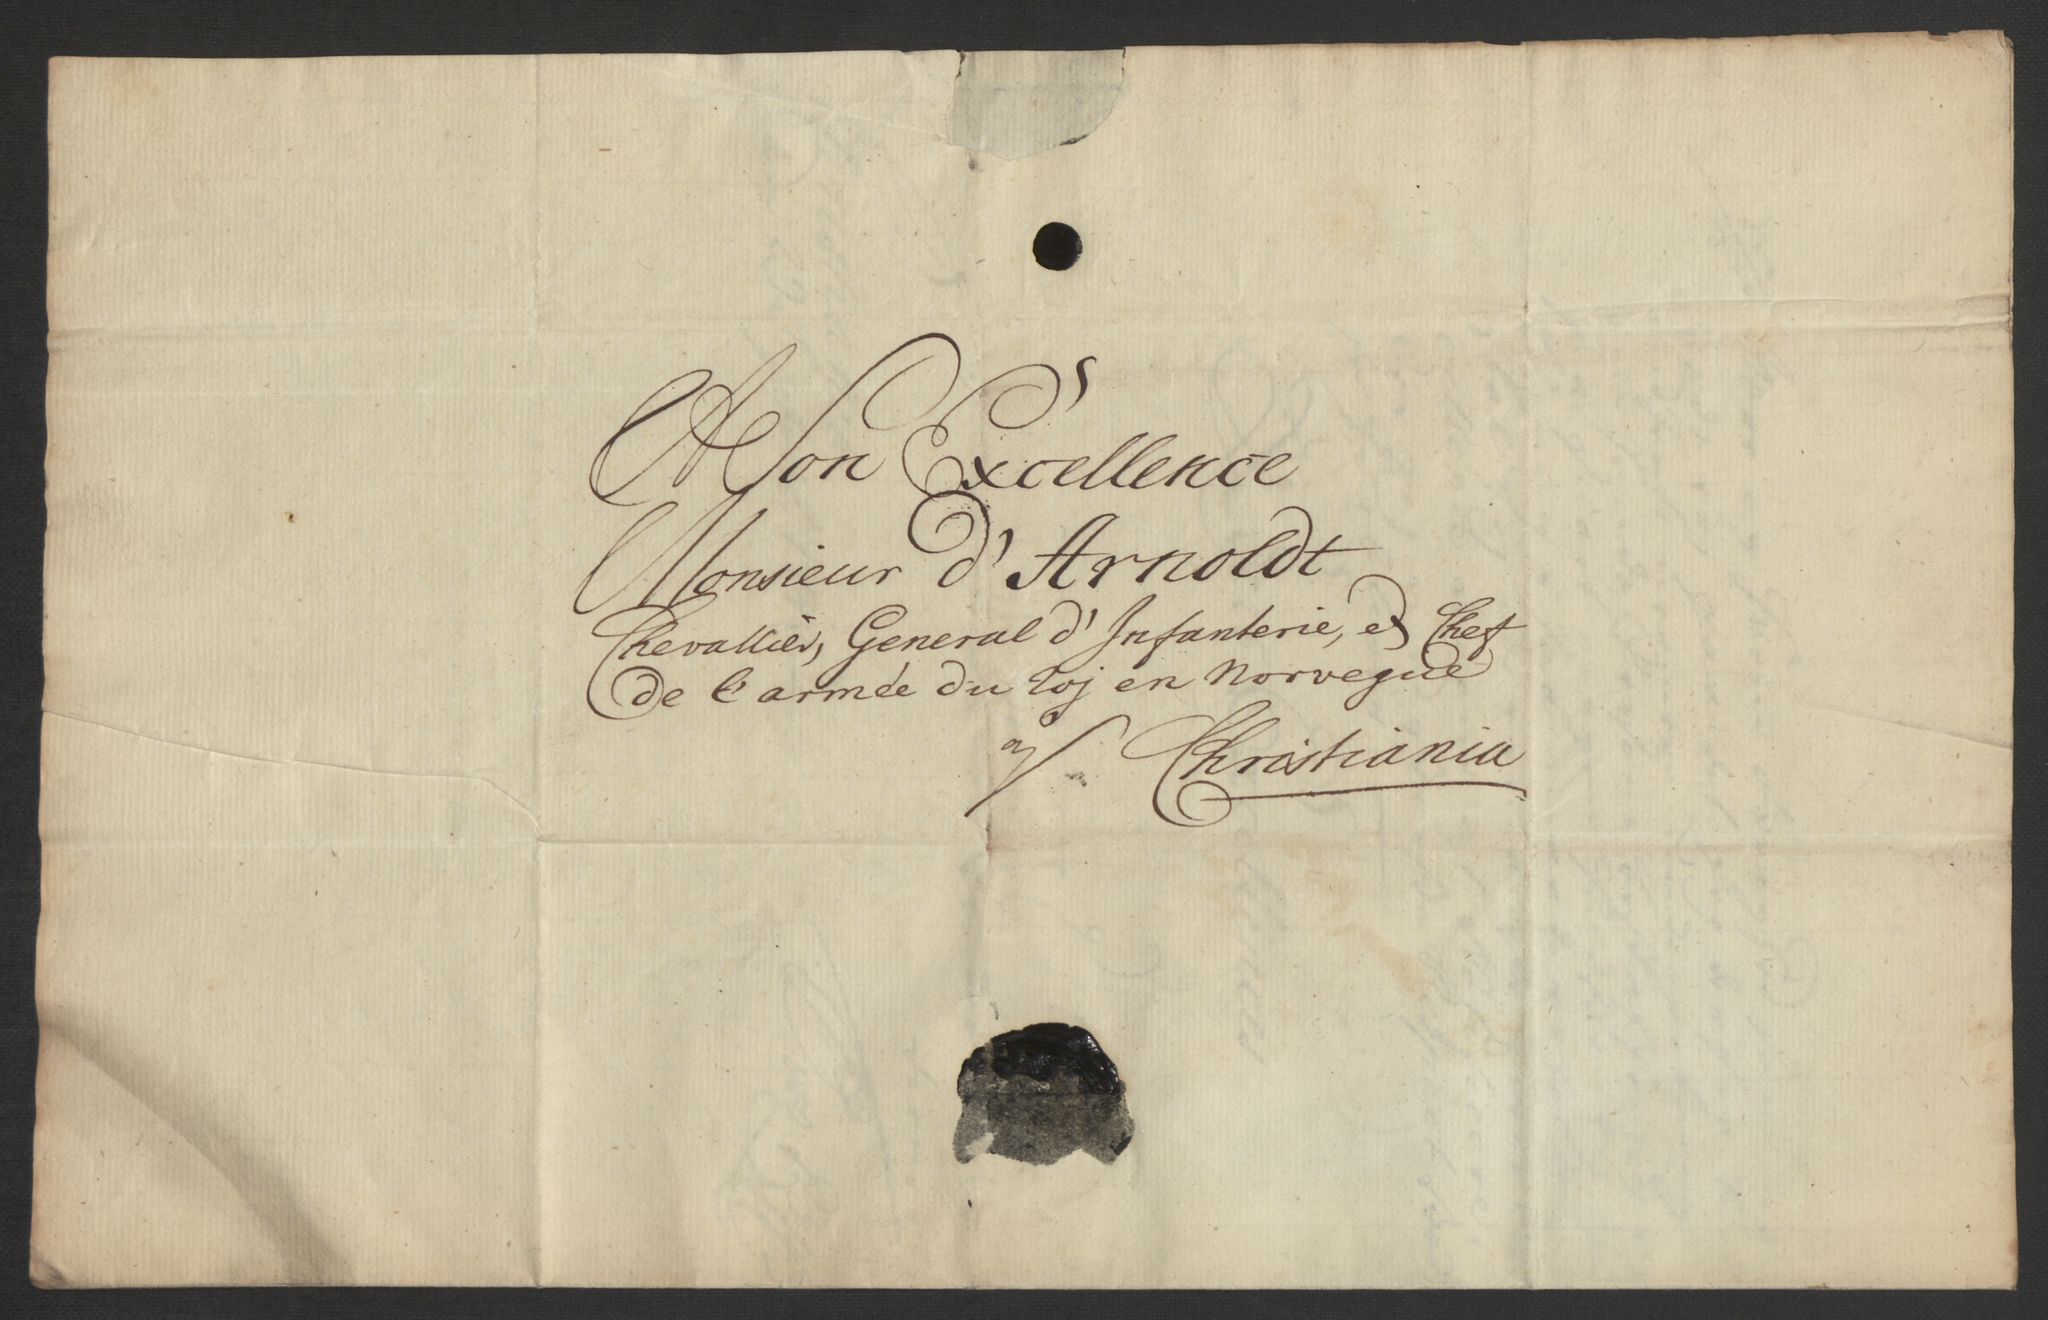 Mon Excellence
Monsieur d'Arnoldt
Chevallier, General d'Infanterie, et Chef
de l'armée du roj en Norvegue
à
Christiania